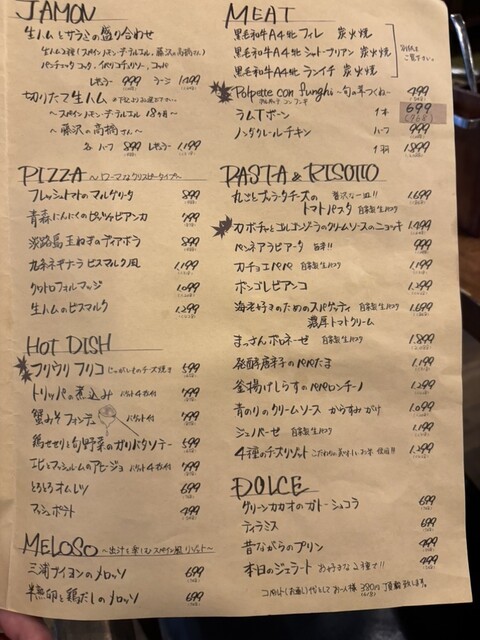 JAMON
生ハムとサラミの盛り合わせ
レギュラー 999 ラージ 1,499
切りたて生ハム
～スペインハモンセラーノ 18ヶ月～
～藤沢の高橋さん～
各 ハーフ 899 レギュラー 1,199
PIZZA ～ローマ風クリスピータイプ～
フレッシュトマトのマルゲリータ 899
青森にんにくのビアンカ 799
淡路島玉ねぎのディアボラ 899
九条ネギナーラ ビスマルク風 1,199
クワトロフォルマッジ 1,099
生ハムのビスマルク 1,299
HOT DISH
フリウリ フリコ じゃがいものチーズ焼き 599
トリッパの煮込み バゲット4枚付 799
蟹みそフォンデュ バゲット付 799
鶏せせりと旬野菜のガリバタソテー 599
エビとマッシュルームのアヒージョ バゲット4枚付 799
とろとろオムレツ 699
マッシュポテト 499
MELOSO ～出汁を楽しむスペイン風リゾット～
三浦ブイヨンのメロッソ 699
半熟卵と鶏だしのメロッソ 699
MEAT
黒毛和牛A4牝 フィレ 炭火焼
黒毛和牛A4牝 シャトーブリアン 炭火焼
黒毛和牛A4牝 ランイチ 炭火焼
別紙をご覧下さい。
Polpette con funghi ～旬の茸つくね～ 499
ラムTボーン 1本 699
ノンデュケルチキン ハーフ 999
1羽 1,899
PASTA & RISOTTO
丸ごとブッラータチーズの 贅沢な一皿!!
トマトパスタ 自家製生パスタ 1,699
カボチャとゴルゴンゾーラのクリームソースのニョッキ 1,499
ペンネアラビアータ 旨辛!! 999
カチョエペペ 自家製生パスタ 1,199
ボンゴレビアンコ 1,299
海老好きのためのスパゲッティ 自家製生パスタ 1,699
濃厚トマトクリーム
まっさんボロネーゼ 自家製生パスタ 1,899
発酵唐辛子のペペたま 1,199
釜揚げしらすのペペロンチーノ 1,299
青のりのクリームソース からすみがけ 1,099
ジェノベーゼ 自家製生パスタ 1,199
4種のチーズリゾット 1,299
DOLCE
グリーンカカオのガトーショコラ 699
ティラミス 699
昔ながらのプリン 499
本日のジェラート お好きな2種で!! 499
コペルト(お通し)代としてお一人様 380円 頂戴致します。